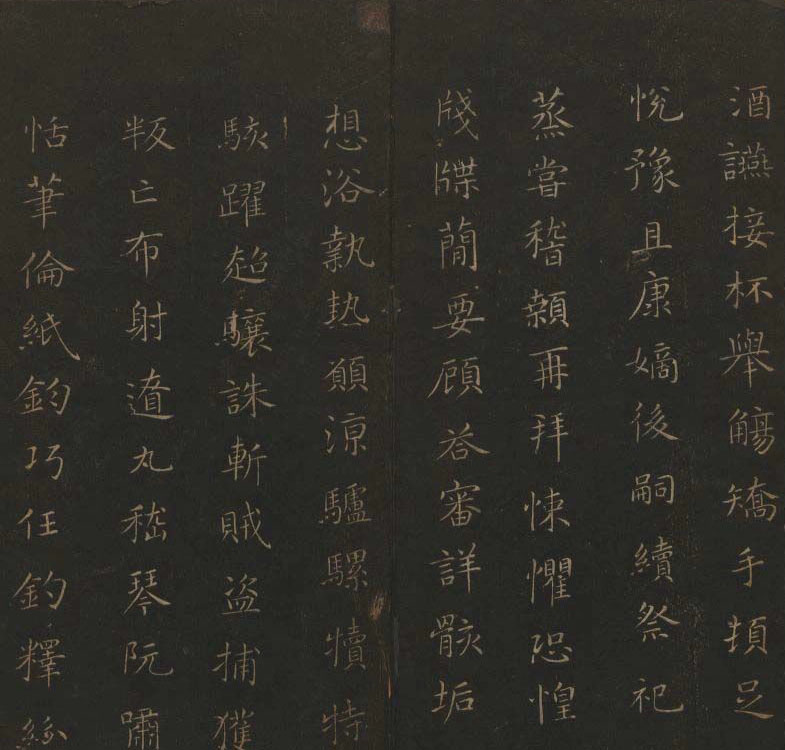 酒讌接杯舉觴矯手頓足
悅豫且康嫡後嗣續祭祀
蒸嘗稽顙再拜悚懼恐惶
牋牒簡要顧荅審詳骸垢
想浴執熱願涼驢騾犢特
駭躍超驤誅斬賊盜捕獲
叛亡布射遼丸嵇琴阮嘯
恬筆倫紙鈞巧任釣釋紛